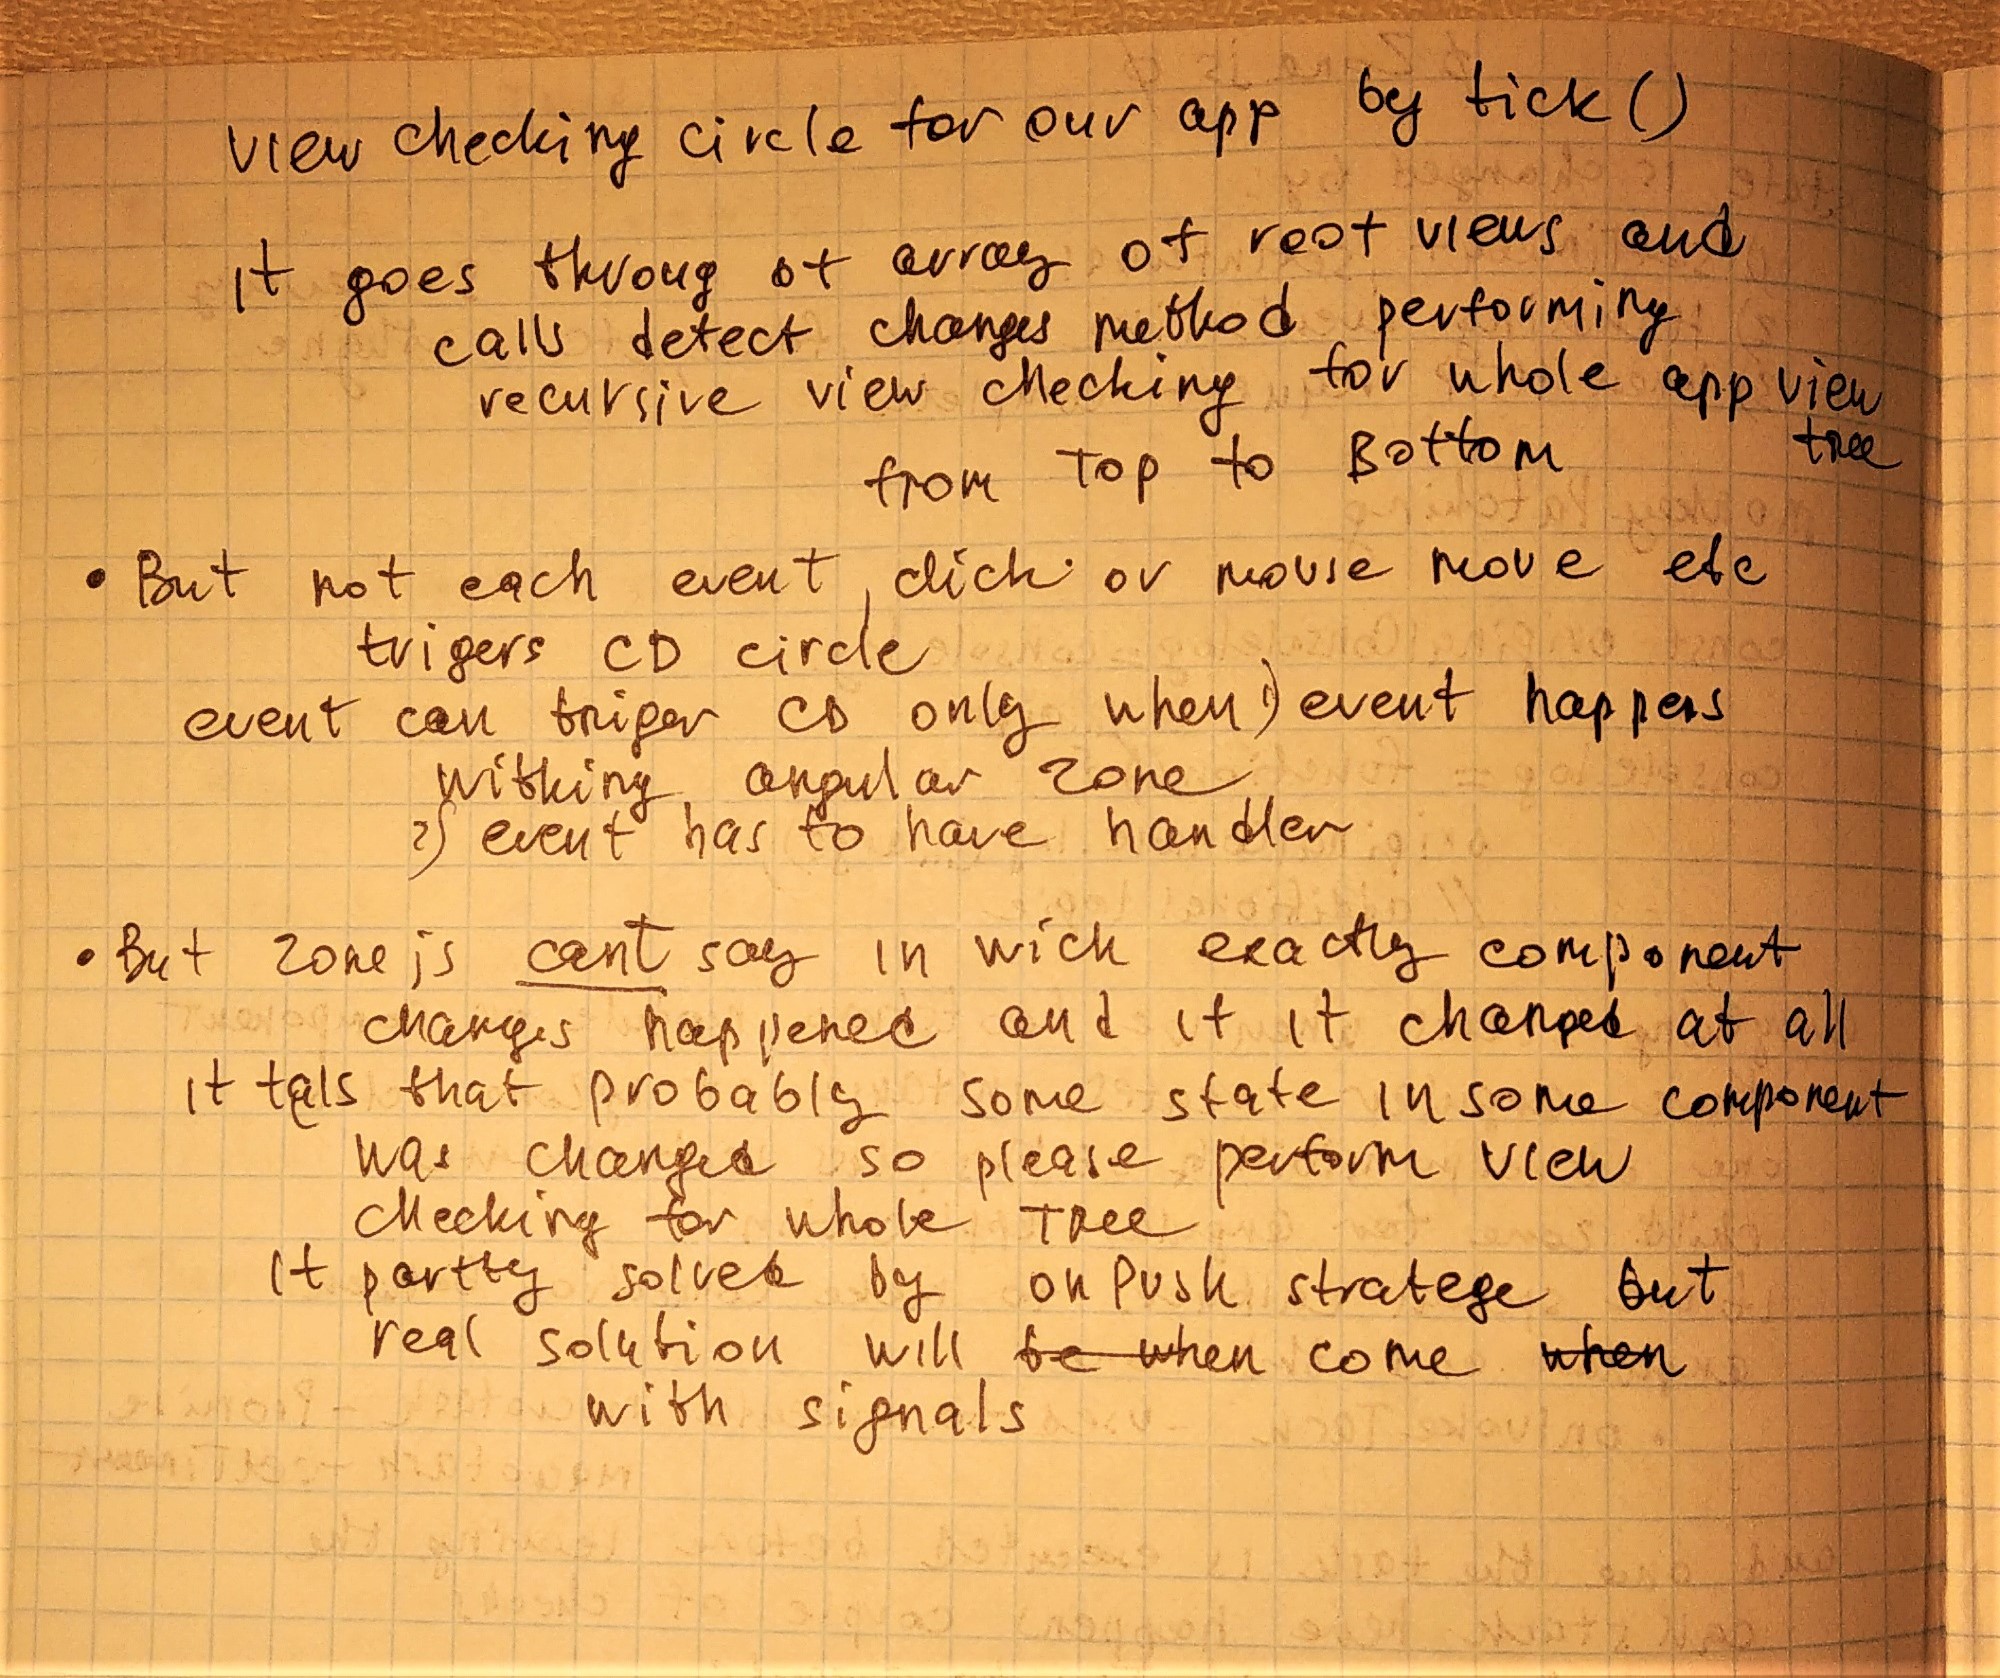 view checking circle for our app by tick()
it goes throug of array of root views and
calls detect changes method performing
recursive view checking for whole app view
tree
from Top to Bottom
• But not each event, click or mouse move etc
trigers CD circle
event can triger CD only when 1) event happens
withing angular zone
2) event has to have handler
• But zone js cant say in wich exactly component
changes happened and if it changed at all
it tels that probably some state in some component
was changed so please perform view
checking for whole Tree
It partly solved by onPush stratege but
real solution will be when come when
with signals